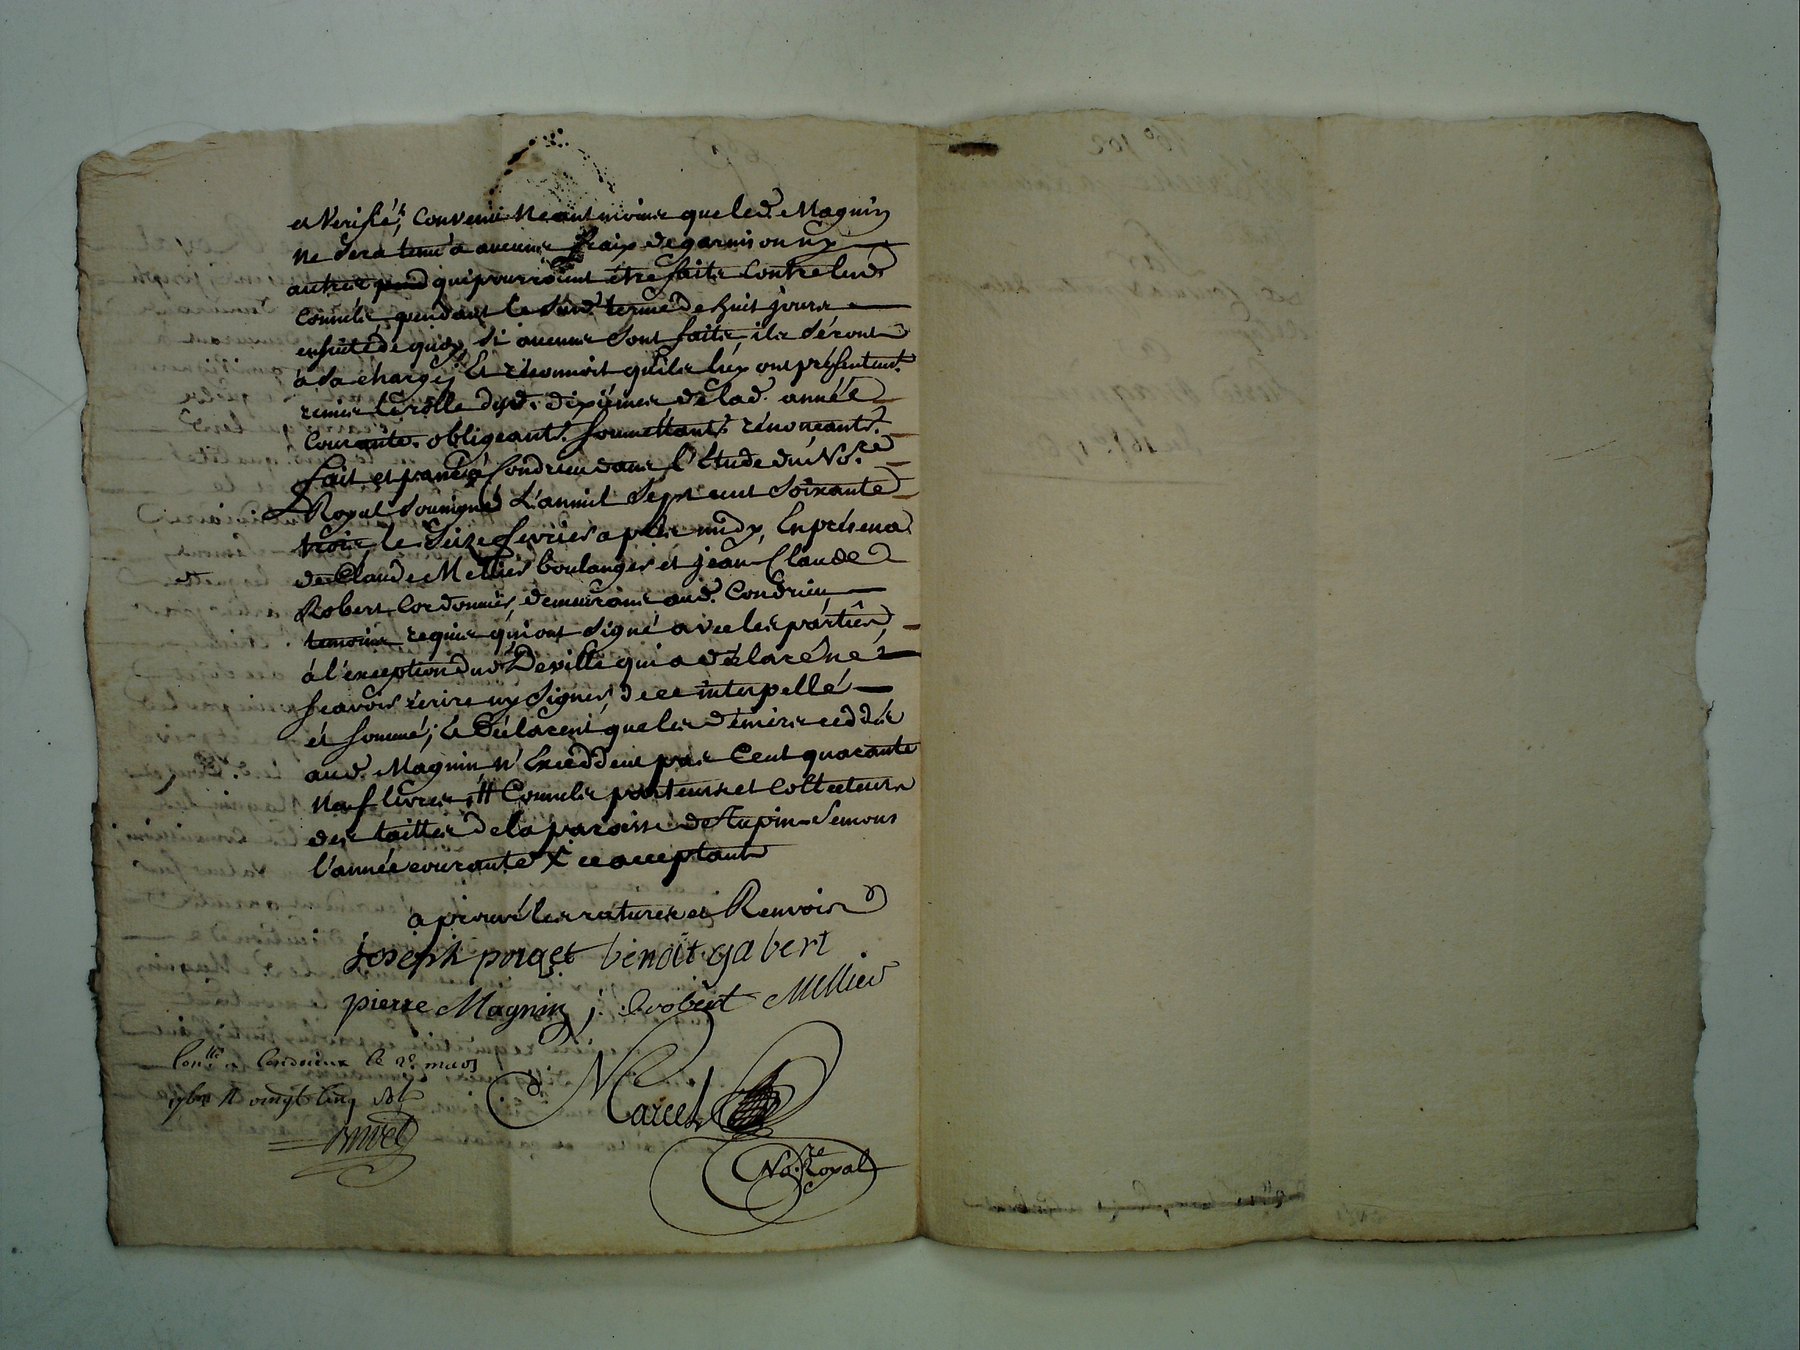 et Verifié, Convenu Neantmoins que led. Magnin
Ne Sera tenu a aucuns fraix de garnison ny
autres qui pourroient être faits Contre lesd.
Consuls, pendant le Susd. terme de huit jours
ensuite de quoy Si aucuns Sont faits, ils Séront
à Sa charge, Et réconnoit qu'ils luy ont présentem.t
remis le rolle desd. dixiémes de lad. année
Courante. obligeants. Soumettants. rénonceants.
fait et passé à Condrieu dans l'Etude du No.re
Royal Soussigné L'an mil Sept cent Soixante
trois, le Seize fevrier après midy, En présence
de Claude Mellier boulanger et jean Claude
Robert Cordonnier, demeurants aud. Condrieu,
temoins requis qui ont Signé avec les parties,
à l'exception dud. Deville qui a déclaré Ne
Scavoir écrire ny Signer, de ce interpellé
et Sommé; Et Déclarent que les déniers ceddés
aud. Magnin N'Exceddent pas Cent quarante
Neuf livres, # Consuls porteurs et Collecteurs
des tailles de la paroisse de Tupin-Semons
l'année courante X ce acceptant
aprouvé les ratures et Renvois
joseph poiget benoit gabert
pierre Magnin j. C. robert Mellier
Con.llé a Condrieux le 2e mars
vingt Cinq
Marcel
No.re Royal